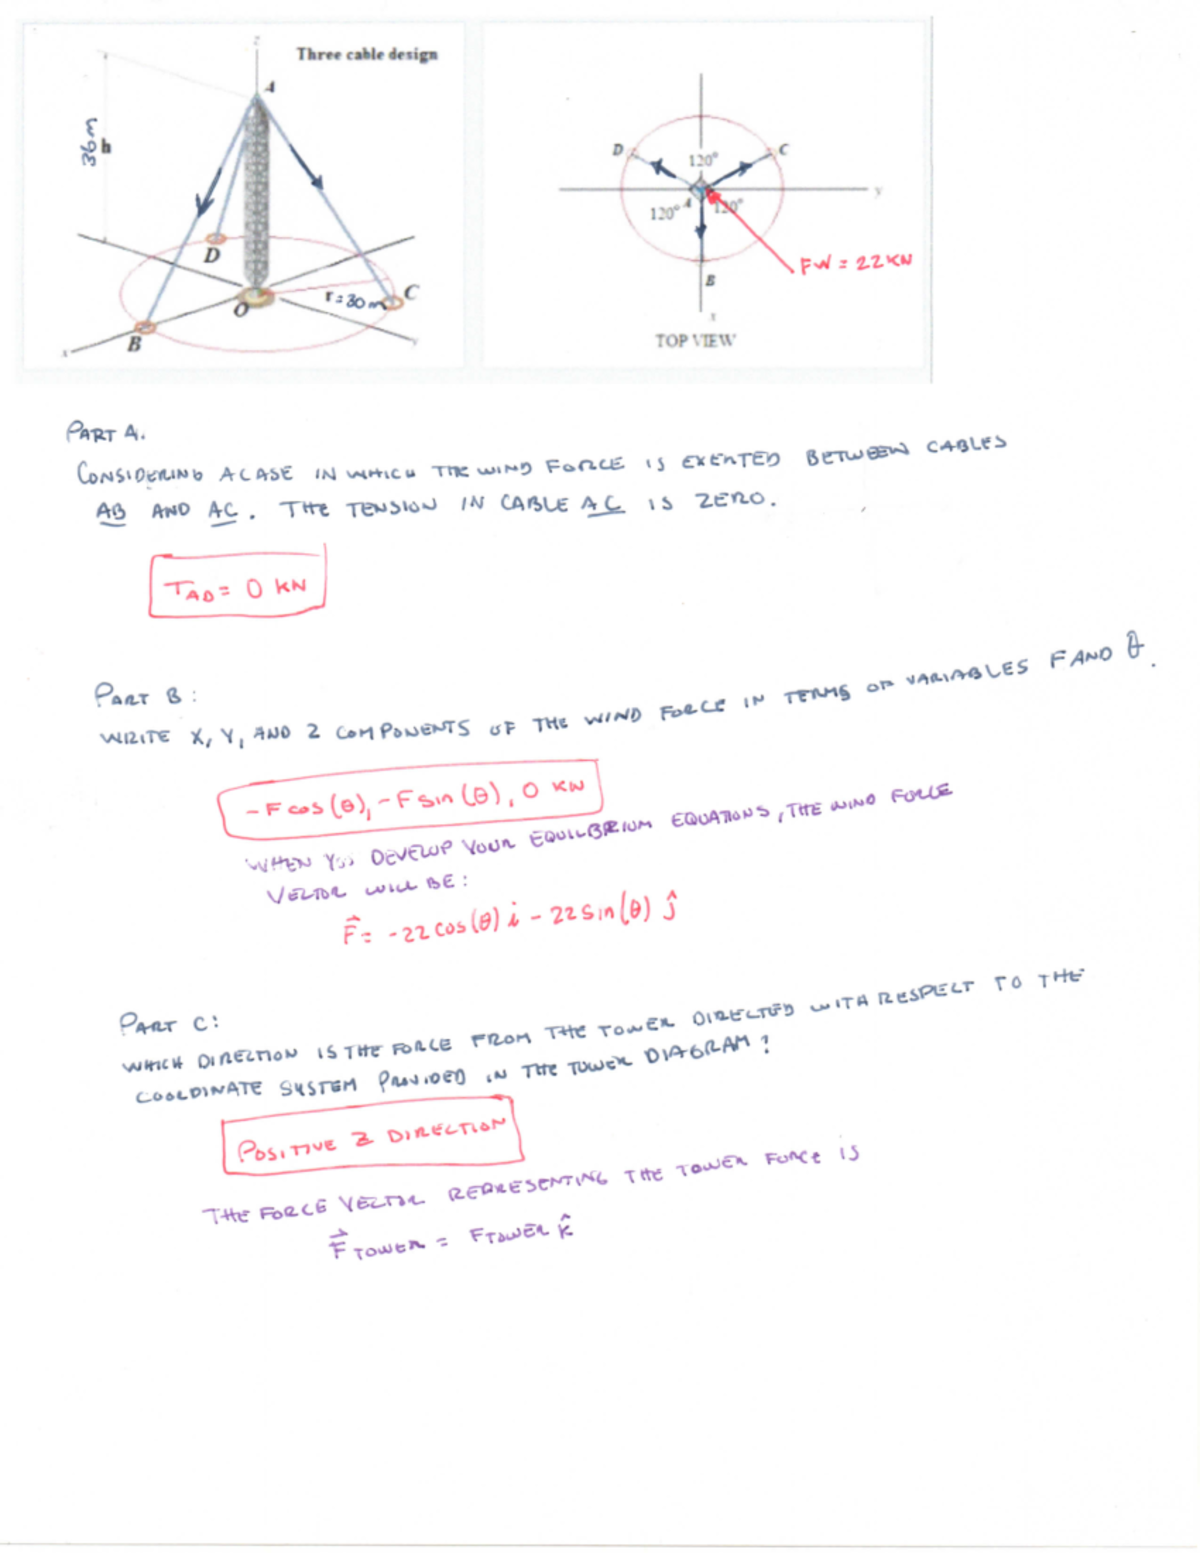 z
Three cable design
A
36m
h
D
O
r=30m
C
B
x
y
D
C
120°
120°
A
120°
y
FW = 22KN
B
x
TOP VIEW
PART A.
CONSIDERING A CASE IN WHICH THE WIND FORCE IS EXERTED BETWEEN CABLES
AB AND AC. THE TENSION IN CABLE AC IS ZERO.
TAD = 0 KN
PART B:
WRITE X, Y, AND Z COMPONENTS OF THE WIND FORCE IN TERMS OF VARIABLES F AND θ.
-F cos(θ), -F sin(θ), 0 KN
WHEN YOU DEVELOP YOUR EQUILBRIUM EQUATIONS, THE WIND FORCE
VECTOR WILL BE:
F⃗ = -22 cos(θ) i - 22 sin(θ) ĵ
PART C:
WHICH DIRECTION IS THE FORCE FROM THE TOWER DIRECTED WITH RESPECT TO THE
COORDINATE SYSTEM PROVIDED IN THE TOWER DIAGRAM?
POSITIVE Z DIRECTION
THE FORCE VECTOR REPRESENTING THE TOWER FORCE IS
F⃗ TOWER = FTOWER k̂